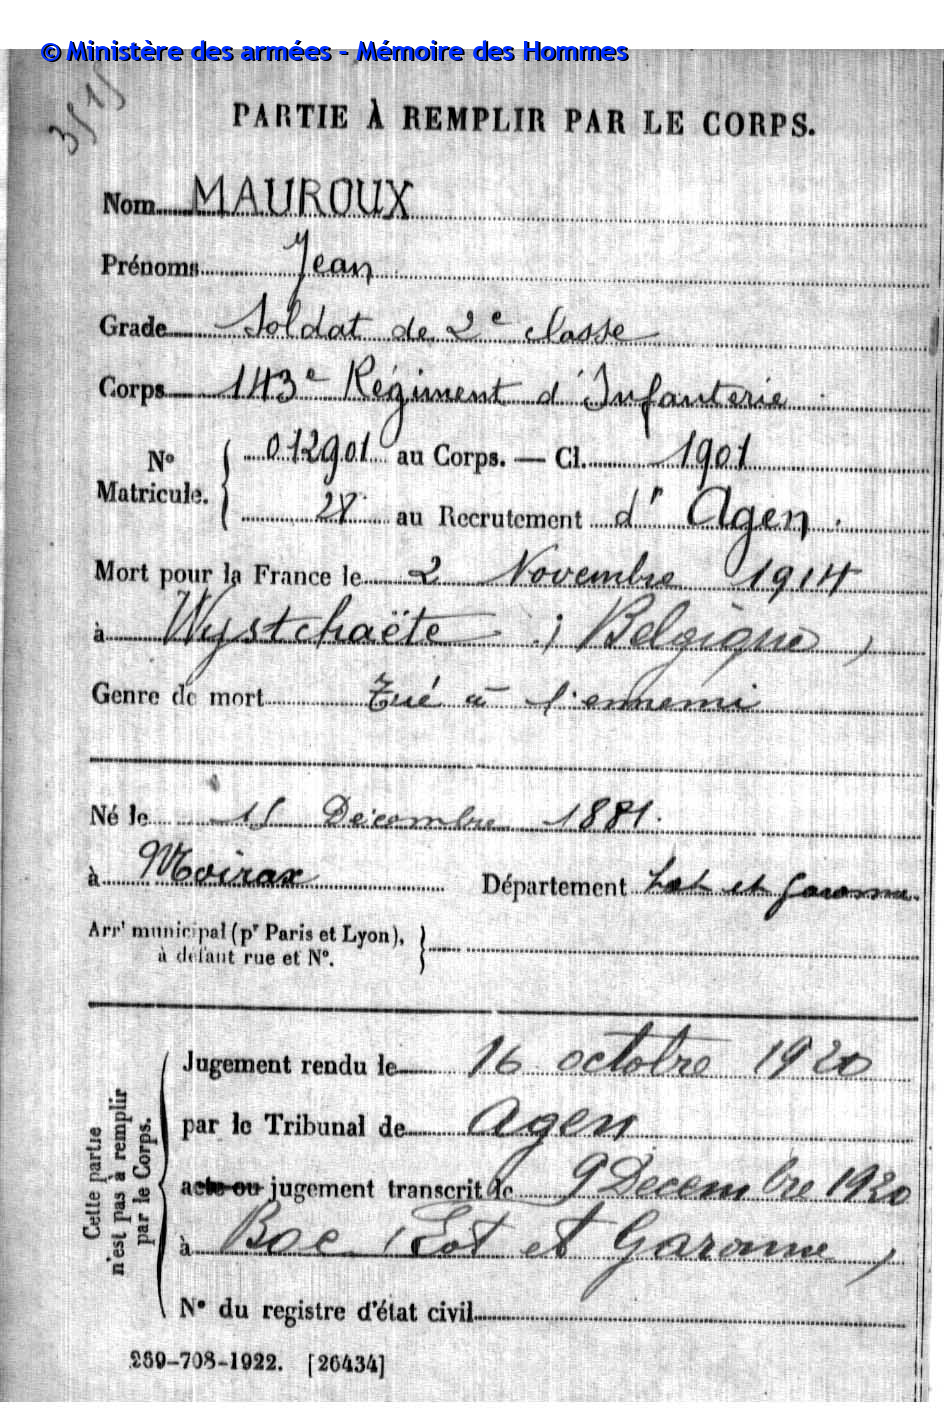 © Ministère des armées - Mémoire des Hommes
PARTIE À REMPLIR PAR LE CORPS.
Nom MAUROUX
Prénoms Jean
Grade Soldat de 2e classe
Corps 143e Régiment d'Infanterie
No Matricule. { 012901 au Corps. — Cl. 1901
28 au Recrutement d' Agen.
Mort pour la France le 2 Novembre 1914
à Wystchaëte (Belgique)
Genre de mort Tué à l'ennemi
Né le 15 Décembre 1881.
à Moirax Département Lot et Garonne.
Arrt municipal (pr Paris et Lyon),
à défaut rue et No. }
Cette partie n'est pas à remplir par le Corps.
Jugement rendu le 16 octobre 1920
par le Tribunal de Agen
acte ou jugement transcrit le 9 Decembre 1920
à Boé (Lot et Garonne)
No du registre d'état civil
269-708-1922. [26434]